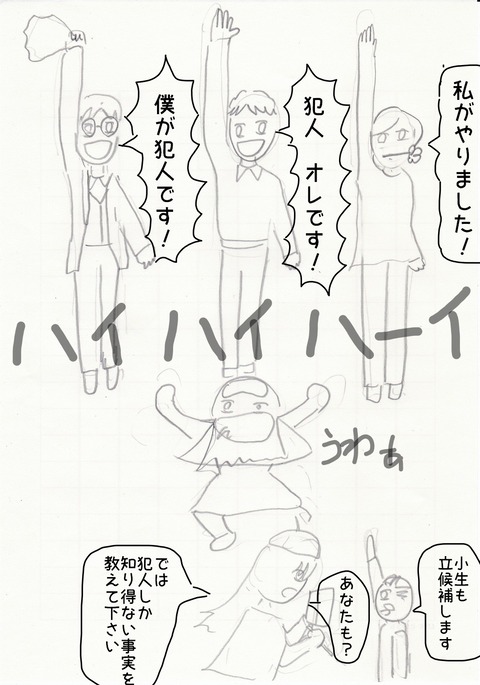 私がやりました！
犯人　オレです！
僕が犯人です！
ハイ　ハイ　ハーイ
うわぁ
小生も
立候補します
あなたも？
では
犯人しか
知り得ない事実を
教えて下さい